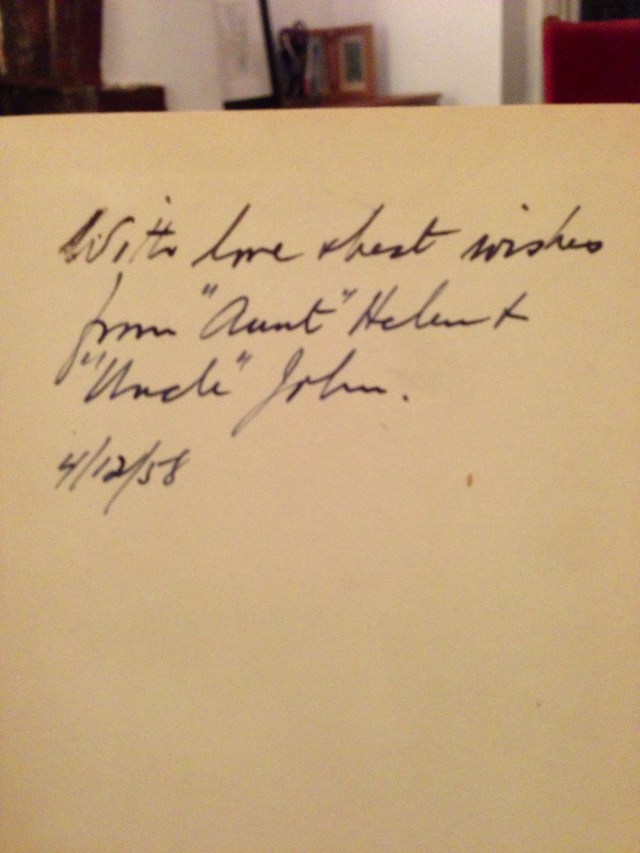 With love & best wishes
from "Aunt" Helen &
"Uncle" John.
4/12/58